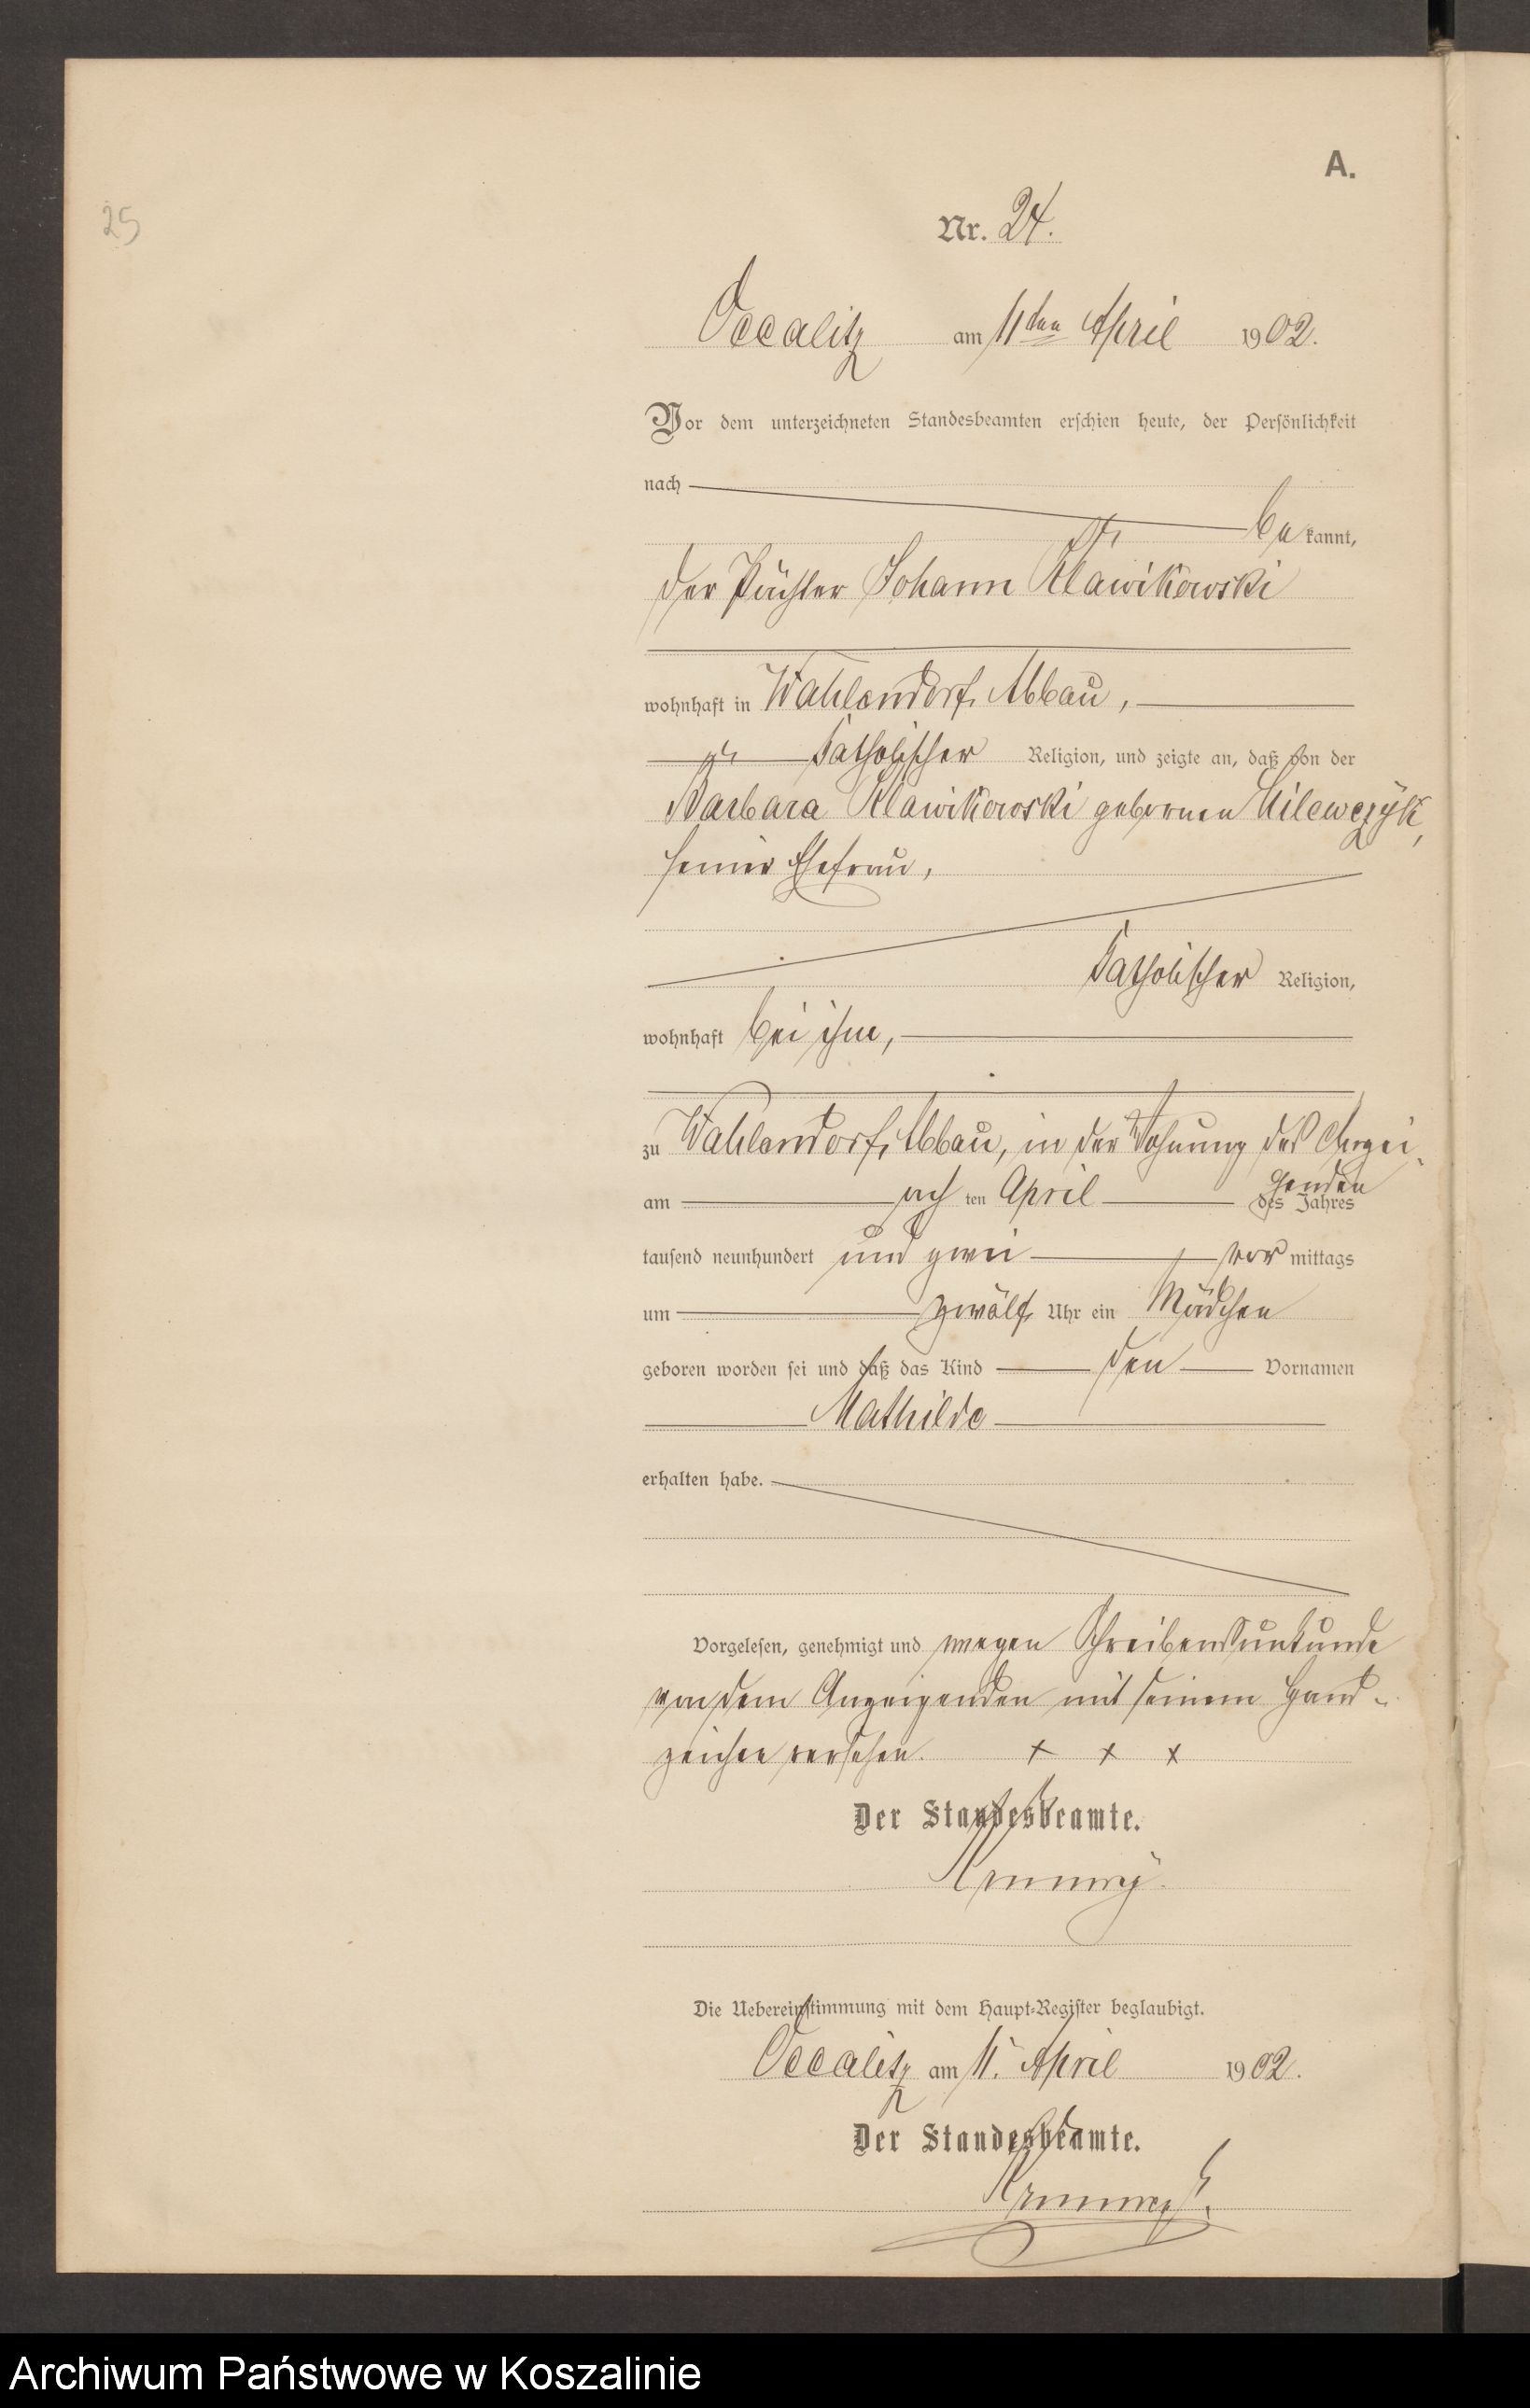 25
A.
Nr. 24.
Occalitz am 11ten April 1902.
Vor dem unterzeichneten Standesbeamten erschien heute, der Persönlichkeit
nach
bekannt,
der Pächter Johann Klawikowski
wohnhaft in Wahlendorf, Abbau,
katholischer Religion, und zeigte an, daß von der
Barbara Klawikowski gebornen Hilewczyk,
seiner Ehefrau,
katholischer Religion,
wohnhaft bei ihm,
zu Wahlendorf, Abbau, in der Wohnung des Anzei-
genden
am acht ten April des Jahres
tausend neunhundert und zwei vor mittags
um zwölf Uhr ein Mädchen
geboren worden sei und daß das Kind den Vornamen
Mathilde
erhalten habe.
Vorgelesen, genehmigt und wegen Schreibensunkunde
von dem Anzeigenden mit seinem Hand-
zeichen versehen. x x x
Der Standesbeamte.
Die Uebereinstimmung mit dem Haupt-Register beglaubigt.
Occalitz am 11. April 1902.
Der Standesbeamte.
Archiwum Państwowe w Koszalinie